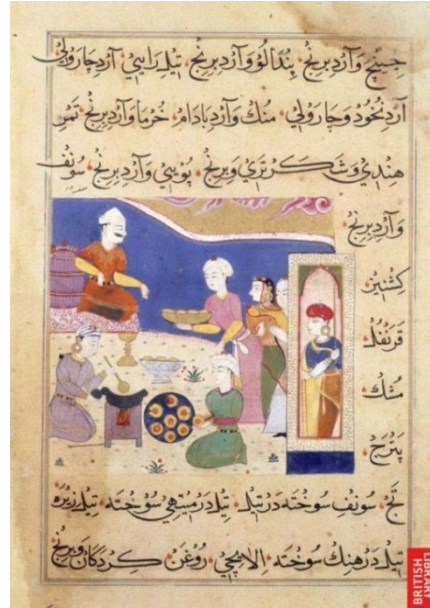 وآردبرنج پندالؤ وآردبرنج تیل رایي آردجارولي
آردنخود وجارولي منك وآردبادام خرما وآردبرنج تمر
هندي وشکر تري وبرنج وآردبرنج سونف
وآردبرنج
کشنیز
قرنفل
مشك
سونف سوخته در تیل تیل در میتهي سوخته تیل زیره
تیل در هنك سوخته الاںچي روغن کردکان وبرنج
BRITISH
LIBRARY